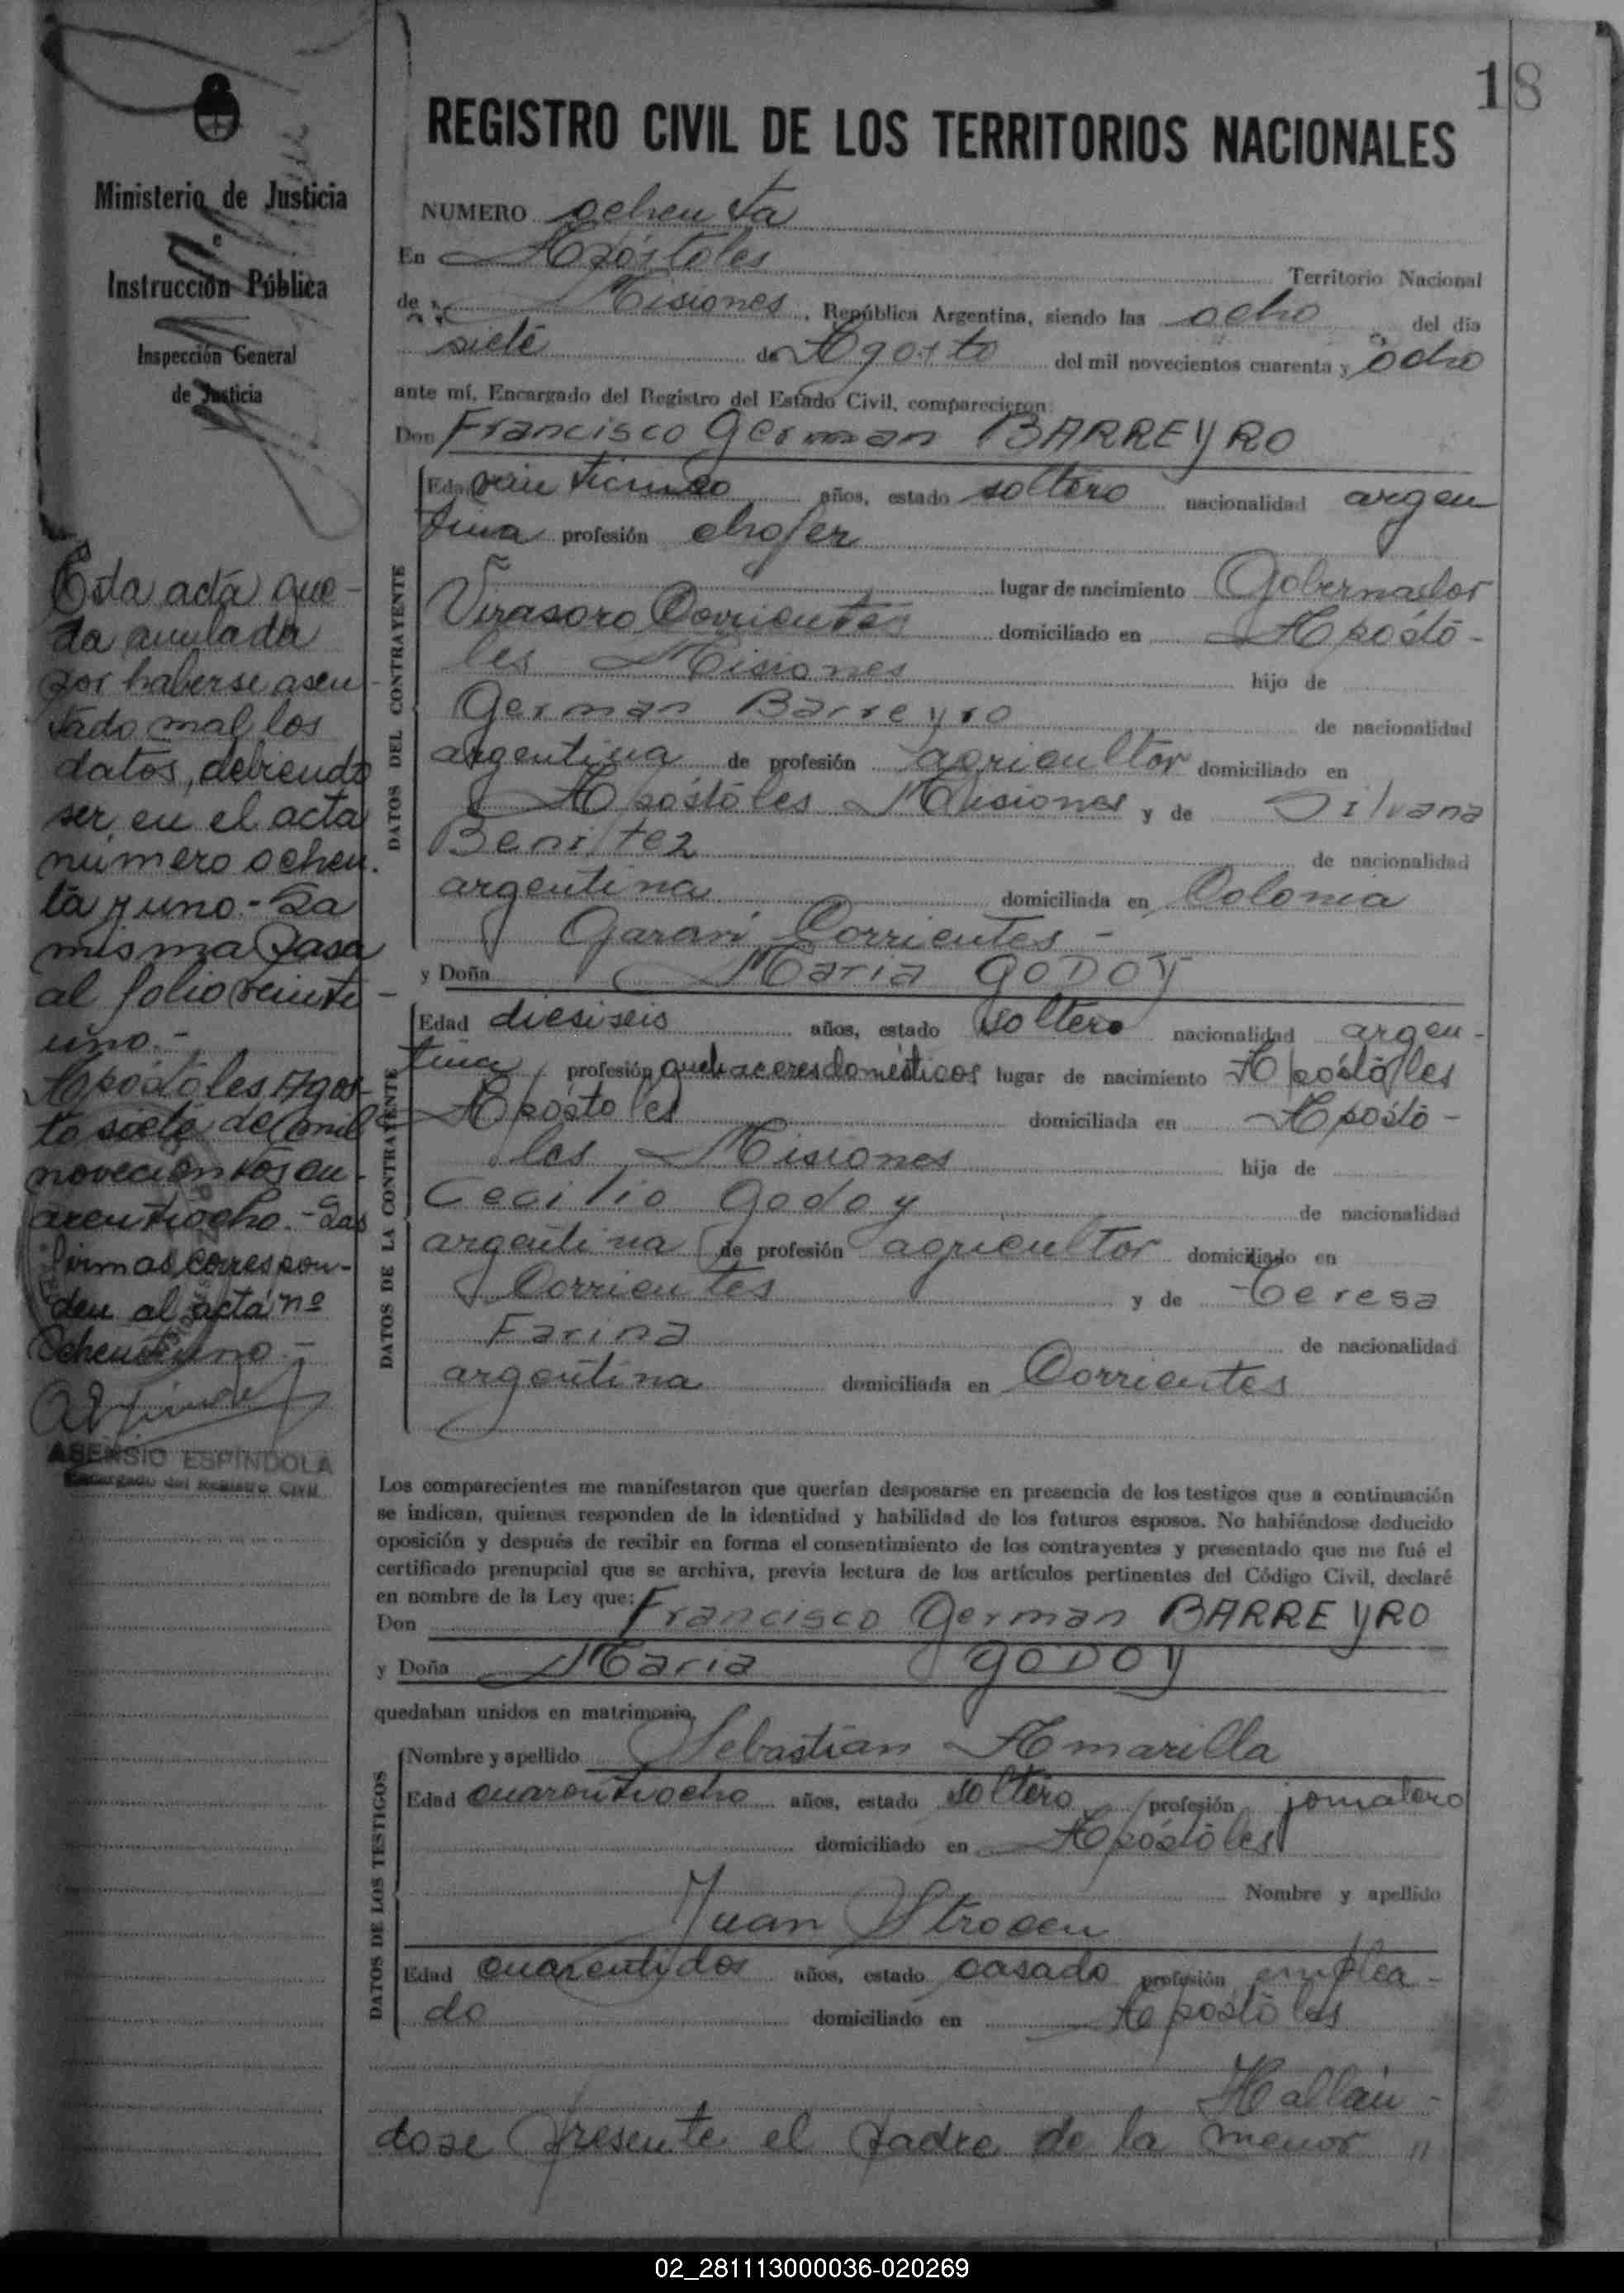 18
Ministerio de Justicia
e
Instrucción Pública
Inspección General
de Justicia
REGISTRO CIVIL DE LOS TERRITORIOS NACIONALES
NUMERO ochenta
En Apóstoles Territorio Nacional
de Misiones, República Argentina, siendo las ocho del día
siete de Agosto del mil novecientos cuarenta y ocho
ante mí, Encargado del Registro del Estado Civil, comparecieron:
Don Francisco German BARREYRO
DATOS DEL CONTRAYENTE
Edad años, estado soltero nacionalidad argen
tina profesión chofer
lugar de nacimiento Gobernador
Virasoro Corrientes domiciliado en Apósto-
les Misiones hijo de
German Barreyro de nacionalidad
argentina de profesión agricultor domiciliado en
Apóstoles Misiones y de Silvana
Benitez de nacionalidad
argentina domiciliada en Colonia
Garaví Corrientes -
y Doña Maria GODOY
DATOS DE LA CONTRAYENTE
Edad diesiseis años, estado soltera nacionalidad argen-
tina profesión quehaceres domésticos lugar de nacimiento Apóstoles
Apóstoles domiciliada en Apósto-
les Misiones hija de
Cecilio Godoy de nacionalidad
argentina de profesión agricultor domiciliado en
Corrientes y de Teresa
Farina de nacionalidad
argentina domiciliada en Corrientes
Los comparecientes me manifestaron que querían desposarse en presencia de los testigos que a continuación
se indican, quienes responden de la identidad y habilidad de los futuros esposos. No habiéndose deducido
oposición y después de recibir en forma el consentimiento de los contrayentes y presentado que me fué el
certificado prenupcial que se archiva, previa lectura de los artículos pertinentes del Código Civil, declaré
en nombre de la Ley que:
Don Francisco German BARREYRO
y Doña Maria GODOY
quedaban unidos en matrimonio.
DATOS DE LOS TESTIGOS
Nombre y apellido Sebastian Amarilla
Edad cuarentiocho años, estado soltero profesión jornalero
domiciliado en Apóstoles
Nombre y apellido
Juan Strocen
Edad cuarentidos años, estado casado profesión emplea-
do domiciliado en Apostoles
Hallán-
dose presente el padre de la menor "
Esta acta que-
da anulada
por haberse asen-
tado mal los
datos, debiendo
ser en el acta
número ochen.
ta y uno.- La
misma pasa
al folio veinte
uno.-
Apóstoles Agos-
to siete de mil
novecientos cu-
arentiocho.- Las
firmas correspon-
den al acta nº
ochentiuno.-
ASENSIO ESPINDOLA
Encargado del Registro Civil
02_281113000036-020269